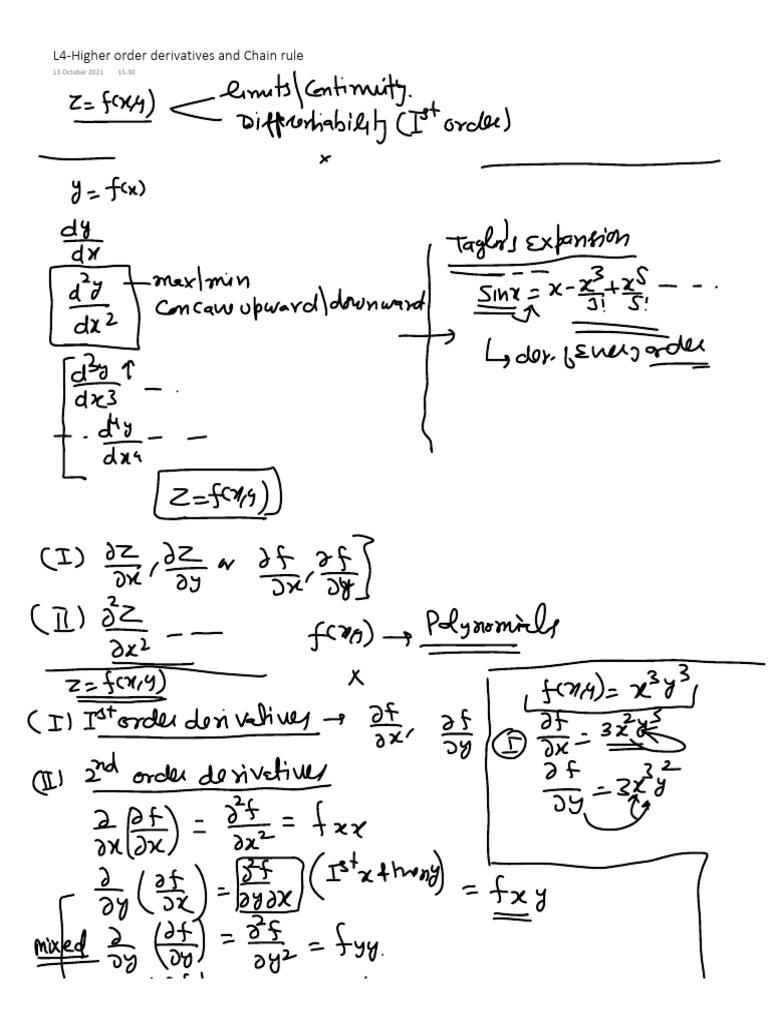 L4-Higher order derivatives and Chain rule
13 October 2021 15:30
z = f(x,y)
limits/Continuity.
Differentiability (Ist order)
x
y = f(x)
dy/dx
d²y/dx²
max/min
Concave upward/downward
d³y/dx³ ↑ - - .
+ . . d⁴y/dx⁴ - -
Taylor's Expansion
Sinx = x - x³/3! + x⁵/5! - - - .
↳ der. of Every order
z = f(x,y)
(I) ∂z/∂x, ∂z/∂y or ∂f/∂x, ∂f/∂y ]
(II) ∂²z/∂x² - - -
f(x,y) → Polynomials
z = f(x,y)
x
(I) Ist order derivatives → ∂f/∂x, ∂f/∂y
(II) 2nd order derivatives
∂/∂x (∂f/∂x) = ∂²f/∂x² = fxx
∂/∂y (∂f/∂x) = ∂²f/∂y∂x (Ist x then y) = fxy
mixed ∂/∂y (∂f/∂y) = ∂²f/∂y² = fyy.
f(x,y) = x³y³
I ∂f/∂x = 3x²y³
∂f/∂y = 3x³y²